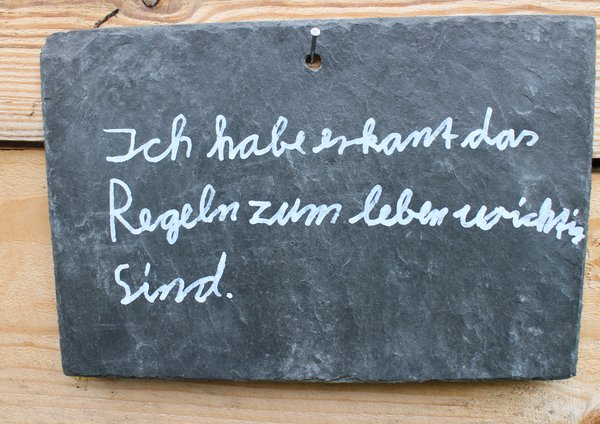 Ich habe erkant das
Regeln zum leben wichtig
sind.